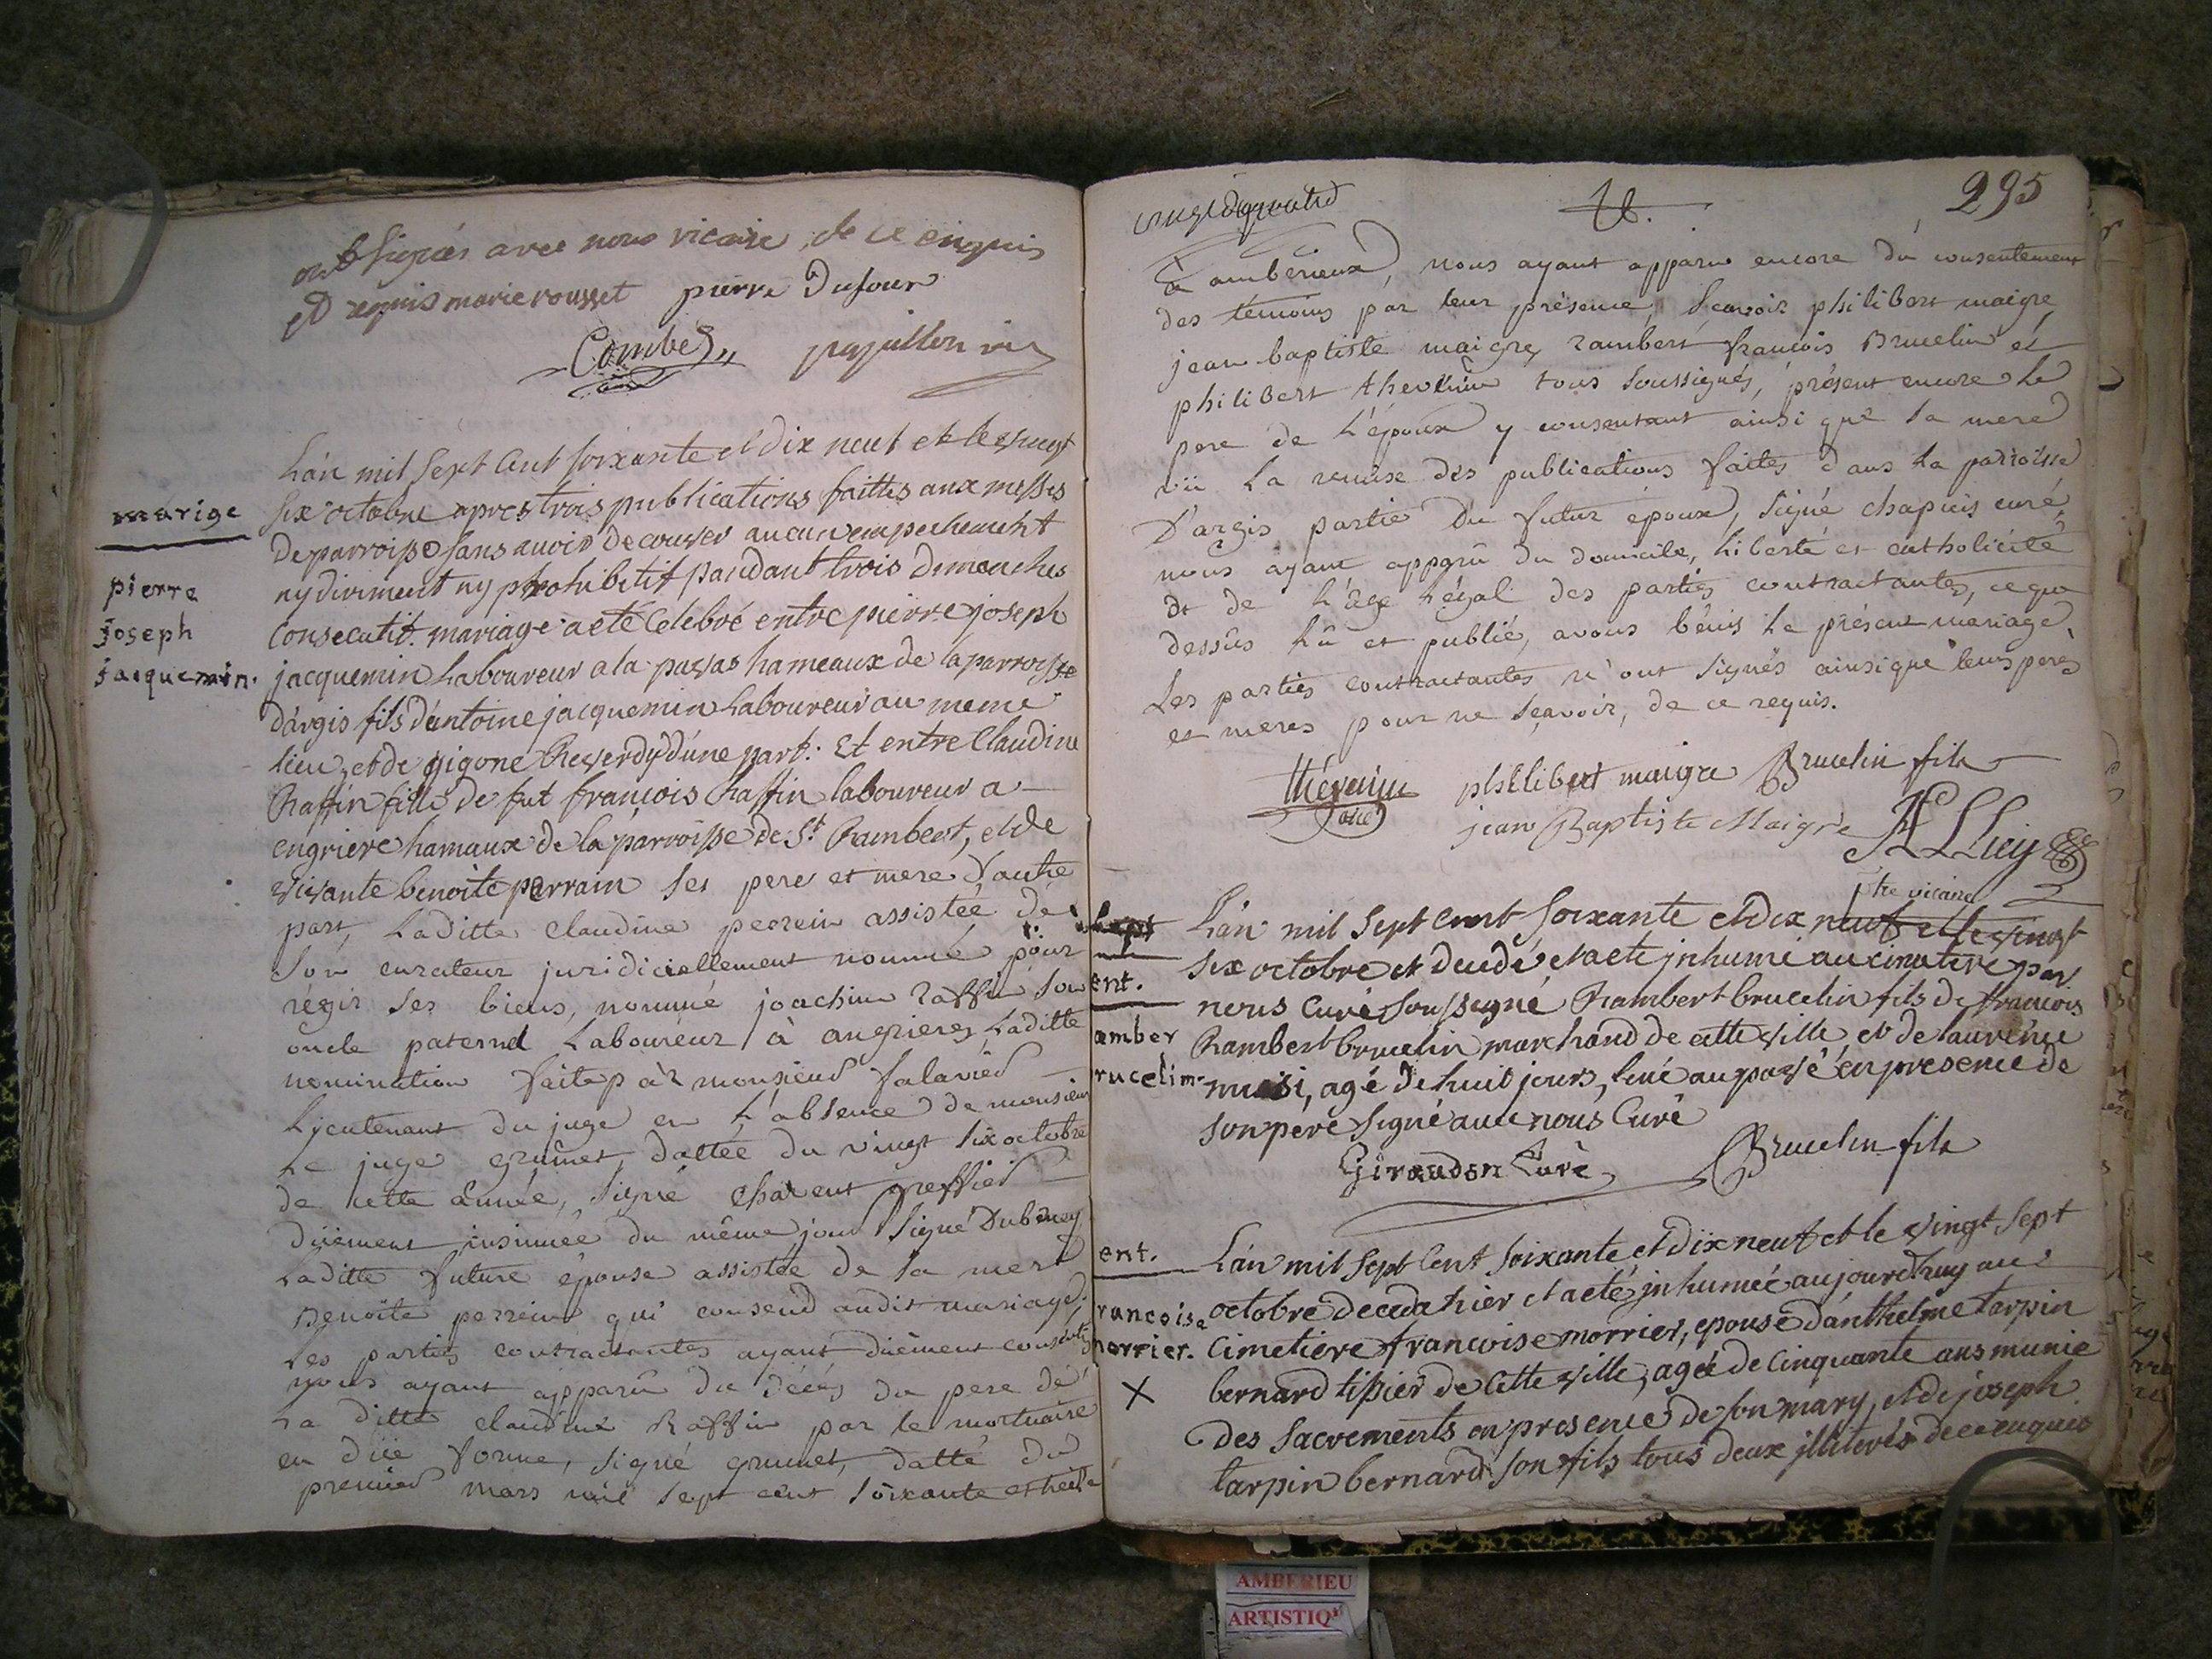 ont signés avec nous vicaire, de ce enquis
et requis marie rousset pierre Dufour
Combet papillon vic
marige
pierre
joseph
jacquemin.
L'an mil sept cent soixante et dix neuf et le vingt
six octobre apres trois publications faittes aux messes
de parroisse sans avoir decouver aucun empechement
ny diriment ny prohibitif pandant trois dimanches
consecutif. mariage a eté celebré entre pierre joseph
jacquemin Laboureur a la hameaux de la parroisse
d'argis fils d'antoine jacquemin Laboureur au meme
lieu, et de gigone Reverdy d'une part. Et entre Claudine
Raffin fille de fut françois Raffin laboureur a
engriere hamaux de la parroisse de St. Rambert, et de
vivante benoite perrain ses pere et mere d'autre
part, Laditte claudine perrein assistée de
son curateur juridiciellement nommé pour
régir ses biens, nommé joachim raffin son
oncle paternel Laboureur à angrieres, Laditte
nomination faite par monsieur falavier
Lieutenant du juge en L'absence de monsieur
Le juge grumet, dattée du vingt six octobre
de cette année, signé Charent greffier
düement insinuée du même jour signé Dubreuy
Laditte future épouse assistée de sa mere
Benoite perrein qui consend audit mariage.
Les parties contractantes ayant düement
nous ayant apparu du décés du pere de
La ditte claudine Raffin par le mortuaire
en düe forme, signé grumet, datté du
premier mars mil sept cent soixante et
295
à ambérieux, nous ayant apparu encore du consentement
des témoins par leur présence, sçavoir philibert maigre,
jean baptiste maigre, rambert françois Brucelin et
philibert thevenin tous soussignés, présent encore Le
pere de L'époux y consentant ainsi que sa mere
vü La remise des publications faites dans La parroisse
D'argis partie du futur époux, signé chapuis curé,
nous ayant apparu du domicile, Liberté et catholicité
et de L'âge Légal des parties contractantes, ce que
dessûs Lû et publié, avons bénis Le présent mariage,
Les parties contractantes n'ont signés ainsi que leurs peres
et meres pour ne sçavoir, de ce requis.
thévenin philibert maigre Brucelin fils
jean Baptiste Maigre
ptre vicaire
ent.
amber
rucelim.
L'an mil sept cent soixante et dix neuf et le vingt
six octobre et decedé et a eté jnhumé au cimetiere par
nous Curé soussigné Rambert brucelin fils de françois
Rambert brucelin marchand de cette ville et de laurence
agé de huit jours, en presence de
son pere signé avec nous Curé
Giraudon Curé Brucelin fils
ent.
rancoise
morrier.
X
L'an mil sept cent soixante et dix neuf et le vingt sept
octobre deceda hier et a eté jnhumée aujourd'huy au
Cimetiere françoise morrier, epouse d'anthelme tarpin
bernard tipier de cette ville, agée de cinquante ans munie
des sacrements en presence de son mary, et de joseph
tarpin bernard son fils tous deux jlliterés de ce enquis
AMBERIEU
ARTISTIQ'